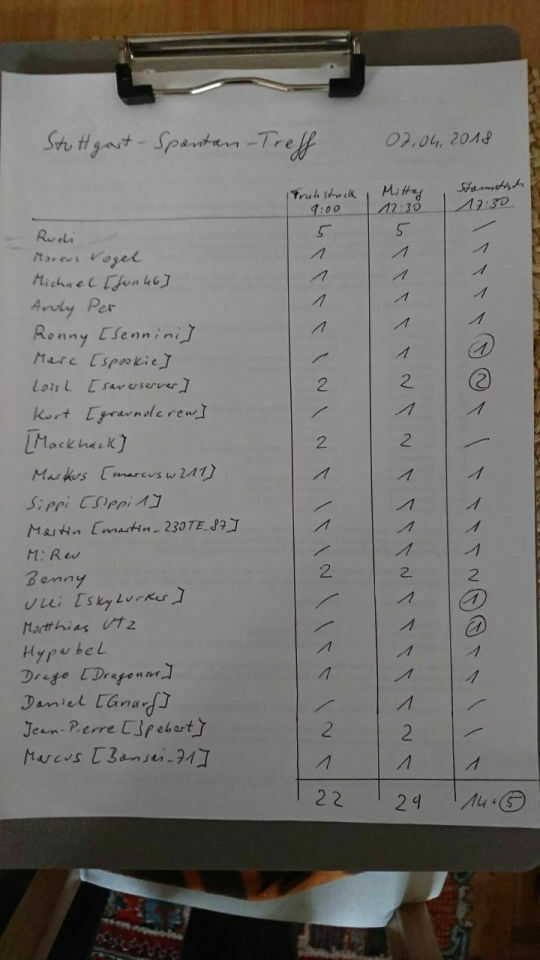 Stuttgart-Spontan-Treff 07.04.2018
Frühstück Mittag Stammtisch
9:00 12:30 17:30
Rudi 5 5 -
Marcus Vogel 1 1 1
Michael [Jun46] 1 1 1
Andy Per 1 1 1
Ronny [Sennini] 1 1 1
Marc [spookie] - 1 1
Loisl [saverserver] 2 2 2
Kurt [groundcrew] - 1 1
[Mackhack] 2 2 -
Markus [marcusw211] 1 1 1
Sippi [Sippi1] - 1 1
Martin [martin_230TE_87] 1 1 1
M:Rev - 1 1
Benny 2 2 2
Ulli [SkyLurker] - 1 1
Matthias Utz - 1 1
Hyperbel 1 1 1
Drago [Dragonar] 1 1 1
Daniel [Gnarf] - 1 -
Jean-Pierre [Jpebert] 2 2 -
Marcus [Bonsai_71] 1 1 1
22 29 14+5